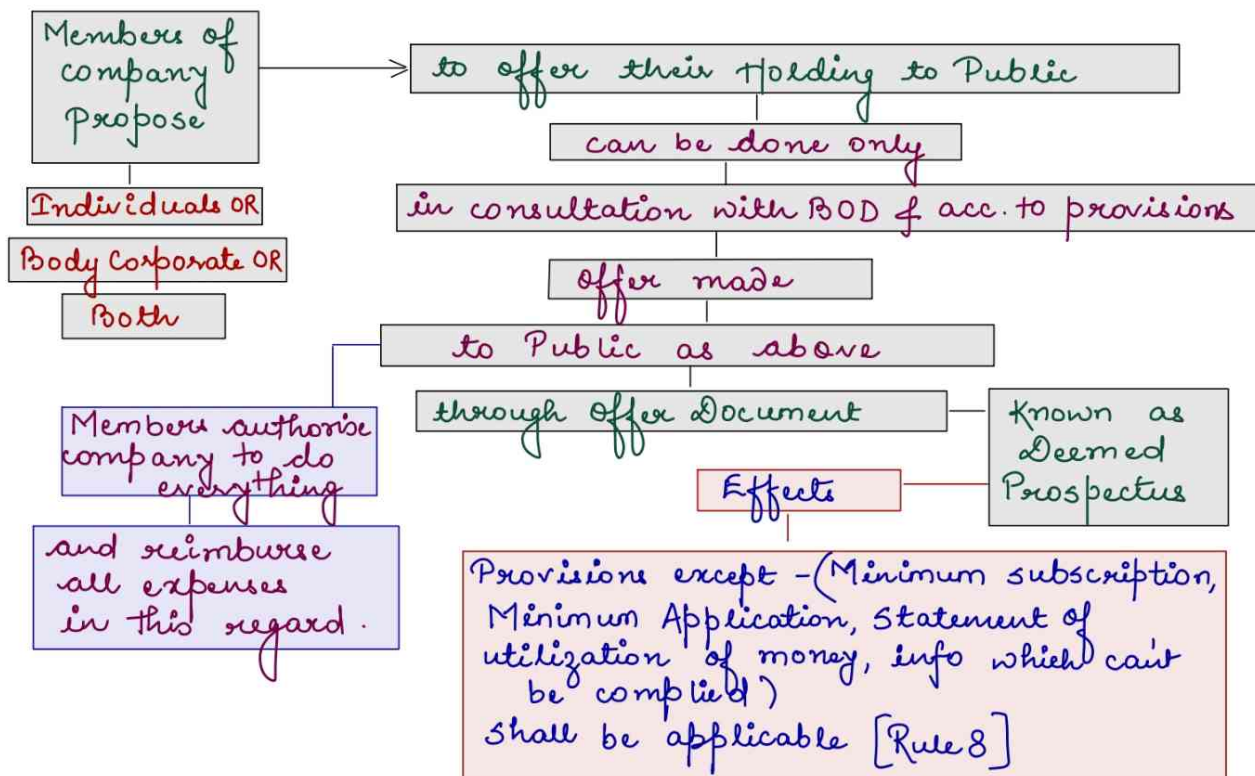 Members of
company
Propose
Individuals OR
Body Corporate OR
Both
to offer their Holding to Public
can be done only
in consultation with BOD & acc. to provisions
offer made
to Public as above
through offer Document
Known as
Deemed
Prospectus
Members authorise
company to do
everything
and reimburse
all expenses
in this regard.
Effects
Provisions except - (Minimum subscription,
Minimum Application, Statement of
utilization of money, info which can't
be complied)
shall be applicable [Rule 8]